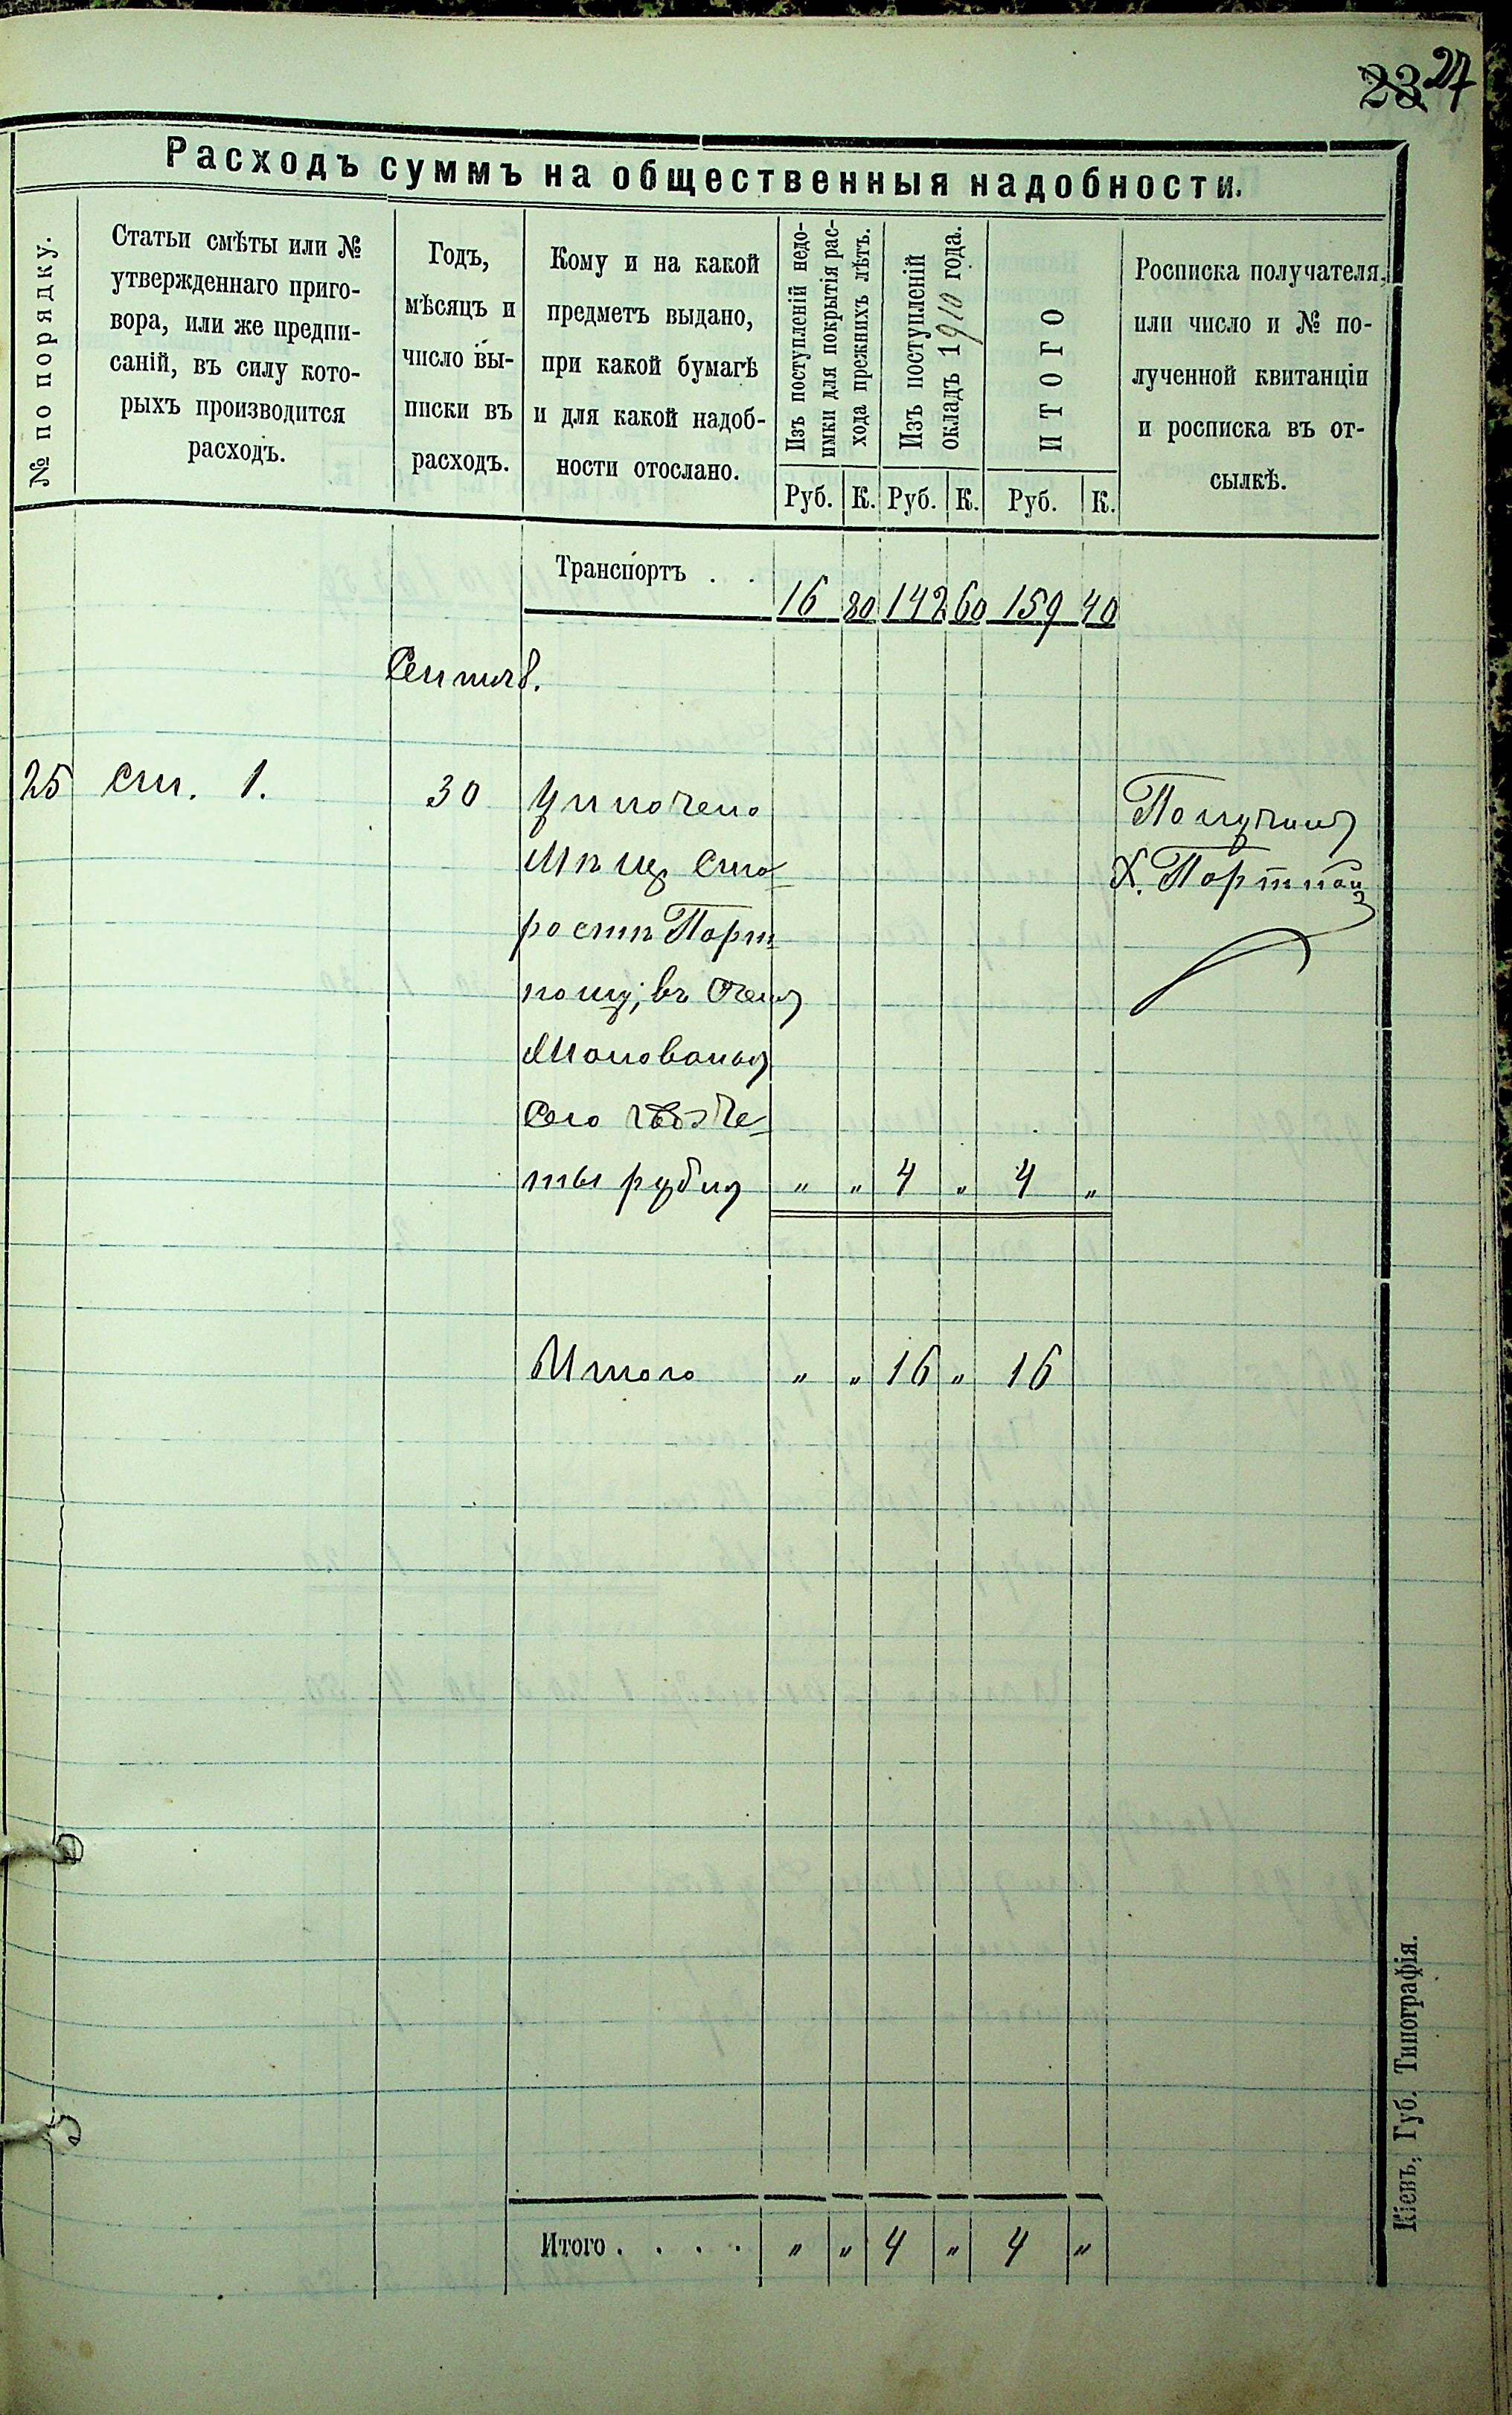 23 27
Расходъ суммъ на общественныя надобности.
№ по порядку.
Статьи смѣты или №
утвержденнаго приго-
вора, или же предпи-
саній, въ силу кото-
рыхъ производится
расходъ.
Годъ,
мѣсяцъ и
число вы-
писки въ
расходъ.
Кому и на какой
предметъ выдано,
при какой бумагѣ
и для какой надоб-
ности отослано.
Изъ поступленій недо-
имки для покрытія рас-
хода прежнихъ лѣтъ.
Изъ поступленій
окладъ 1910 года.
ИТОГО
Росписка получателя,
или число и № по-
лученной квитанціи
и росписка въ от-
сылкѣ.
Руб. К. Руб. К. Руб. К.
Транспортъ . . 16 80 142 60 159 40
Сентяб.
25 ст. 1. 30 Уплочено Получилъ
Мѣщ. Ста- Х. Портной
ростѣ Порт
ному, въ счетъ
Жалованья
сего
ты рубля " " 4 " 4 "
Итого " " 16 " 16
Итого . . . . " " 4 " 4 "
Кіевъ, Губ. Типографія.